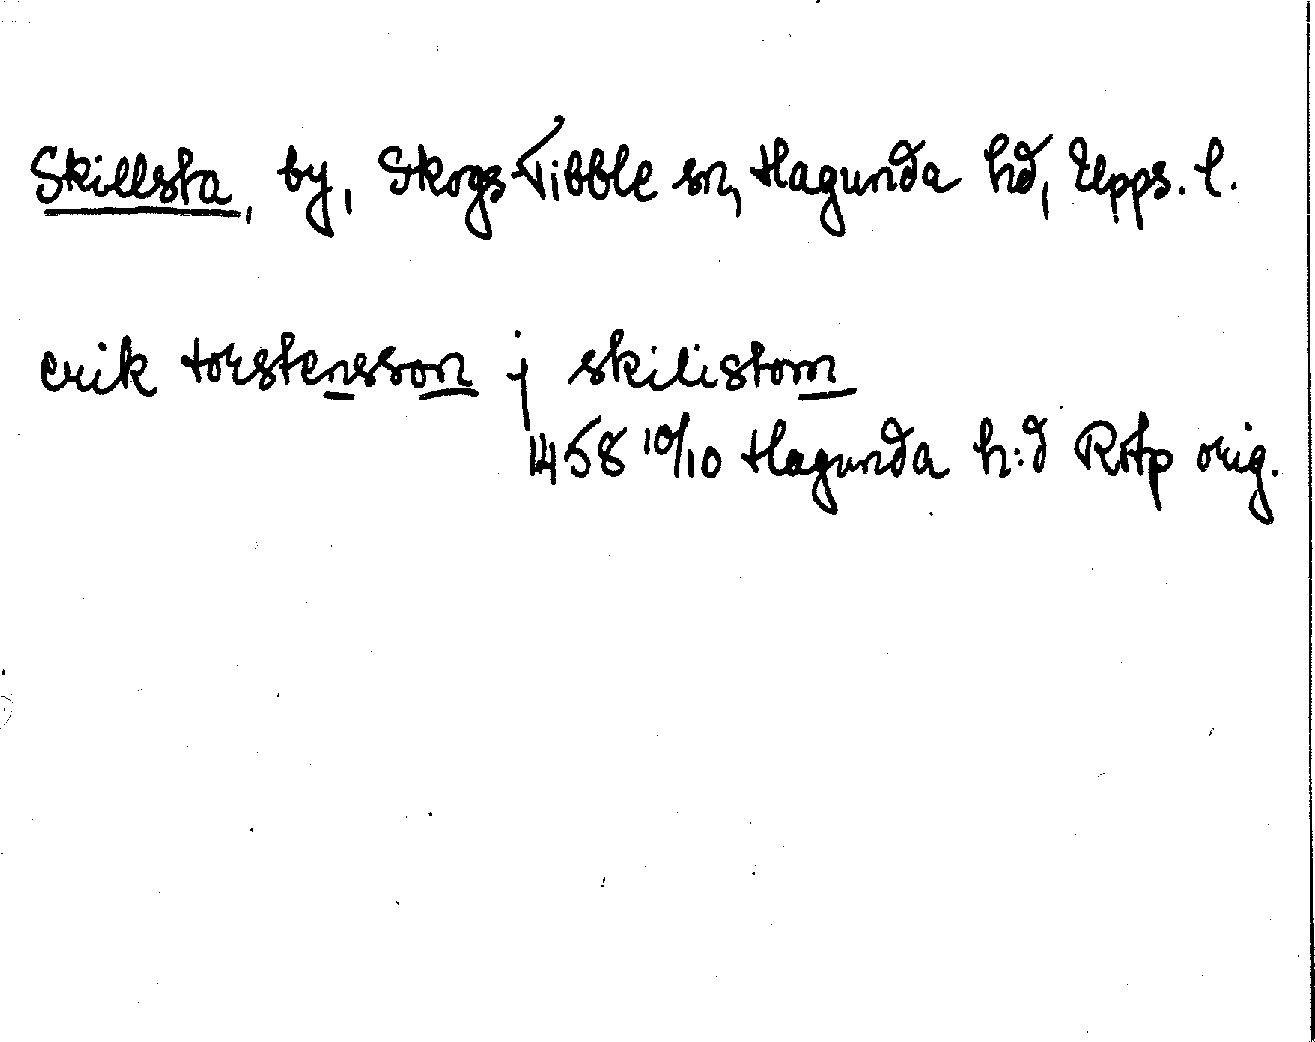 Skillsta, by, Skogs-Tibble sn, Hagunda hd, Upps. l.
erik torstensson j skilistom
1458 10/10 Hagunda h:d RAp orig.